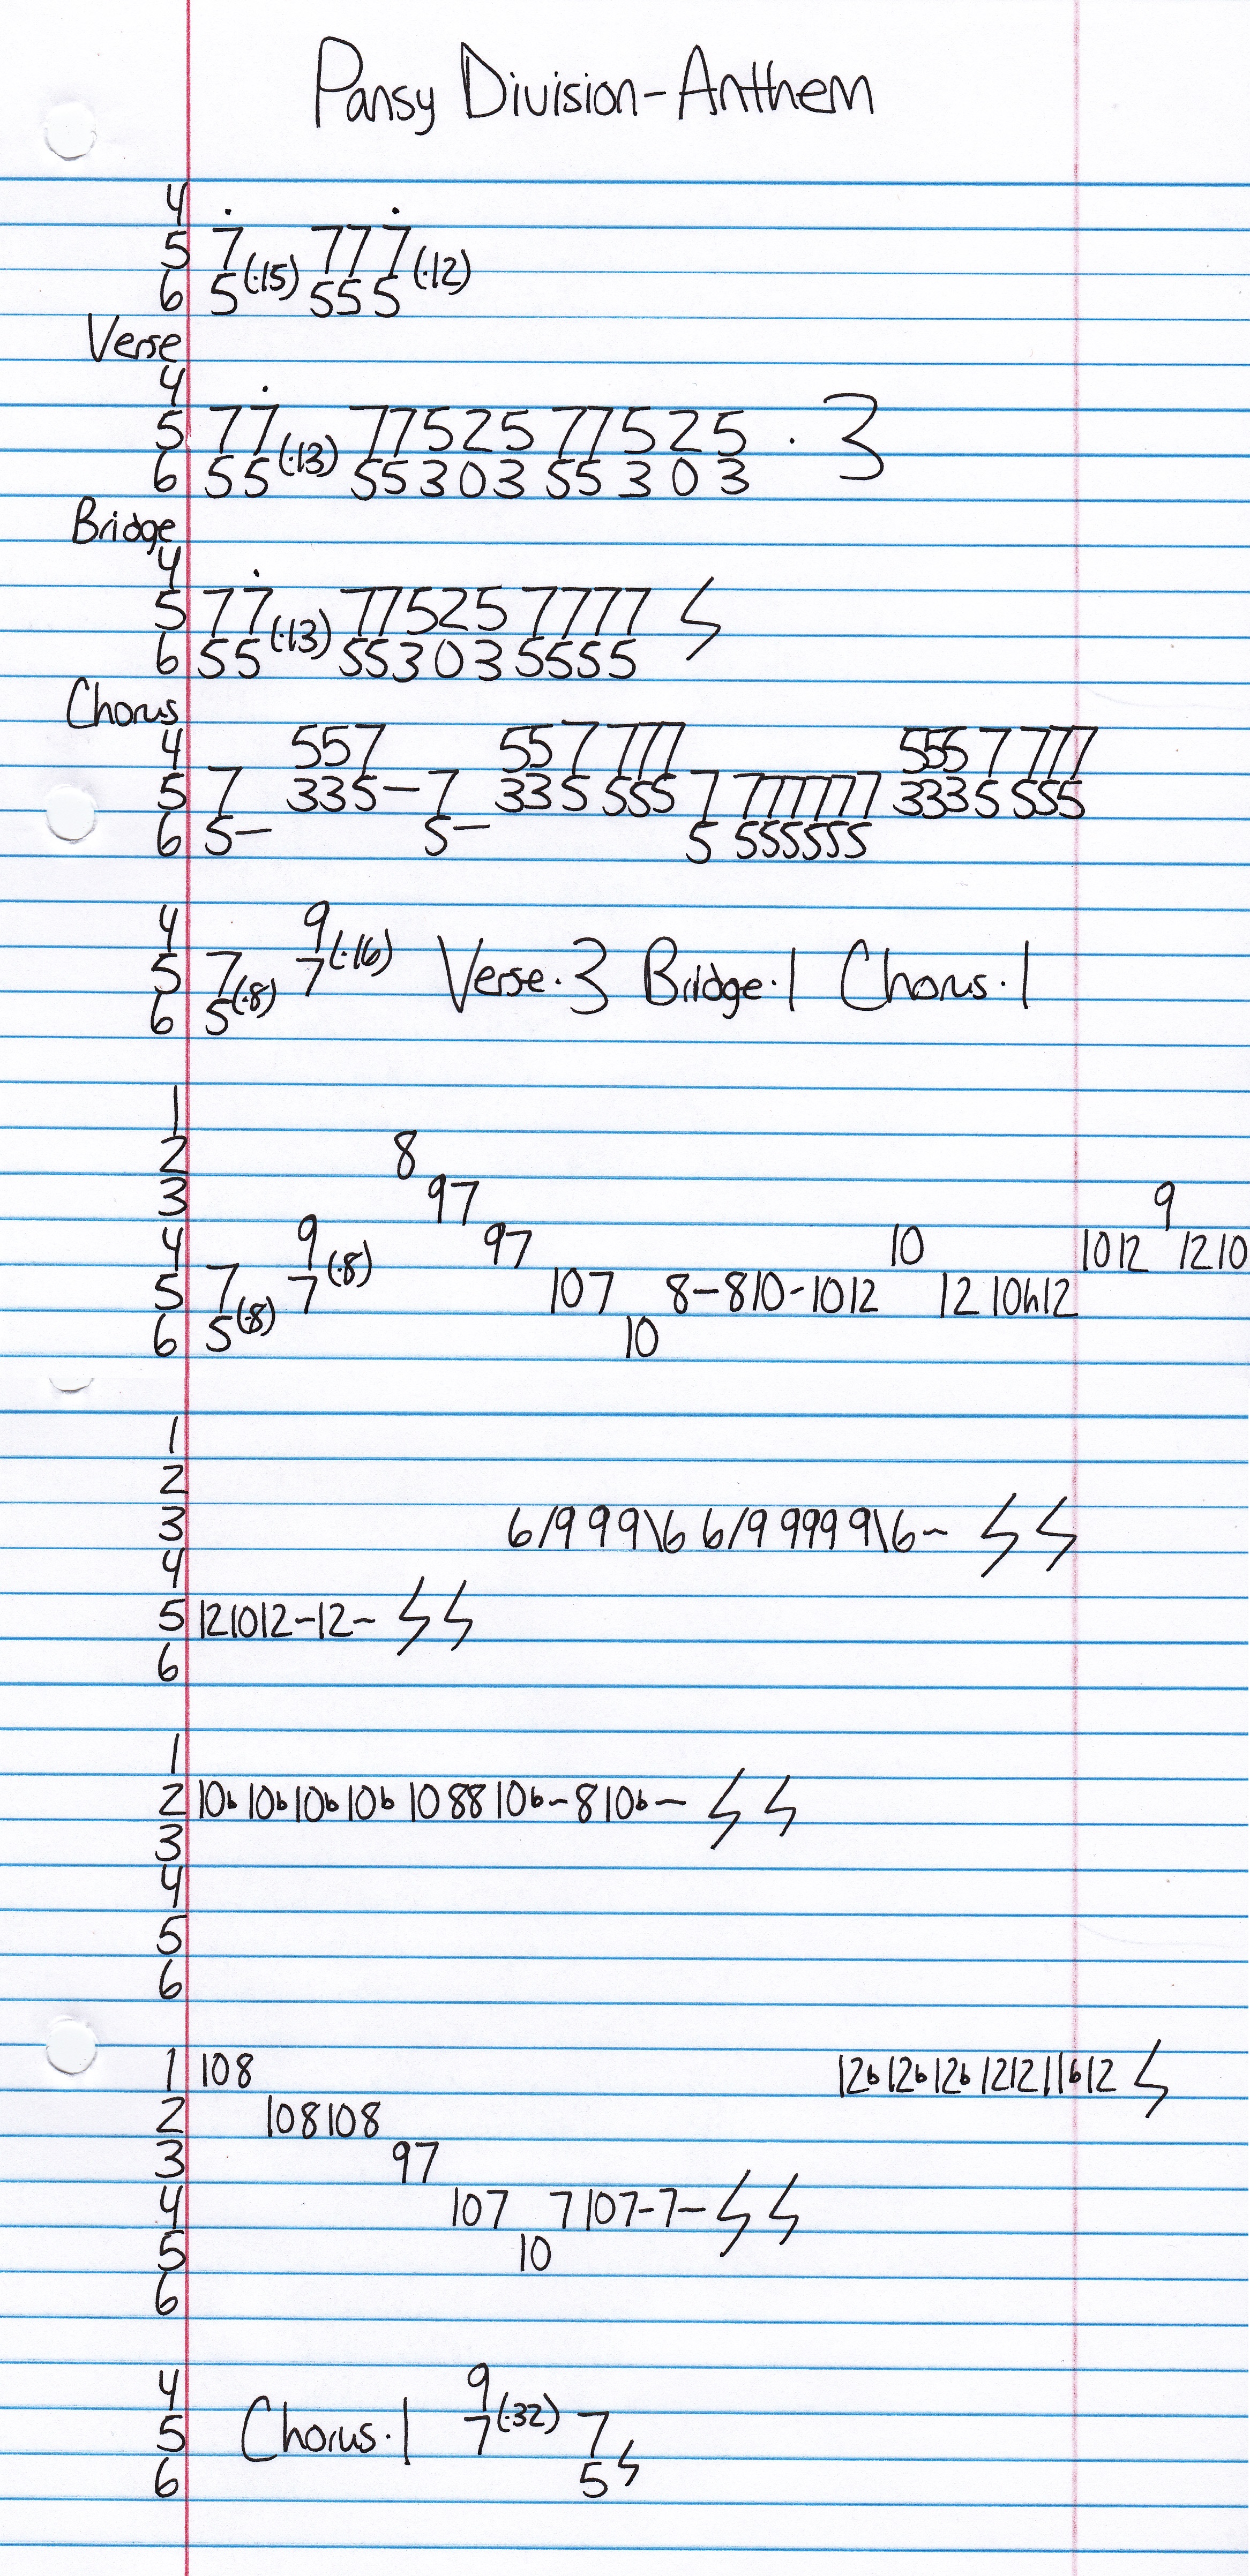 Pansy Division-Anthem
4
5 7̇(·15) 7 7 7̇(·12)
6 5 5 5 5
Verse
4
5 7 7̇(·13) 7 7 5 2 5 7 7 5 2 5 · 3
6 5 5 5 5 3 0 3 5 5 3 0 3
Bridge
4
5 7 7̇(·13) 7 7 5 2 5 7 7 7 7 ϟ
6 5 5 5 5 3 0 3 5 5 5 5
Chorus
4 5 5 7 5 5 7 7 7 7 5 5 5 7 7 7 7
5 7 3 3 5 – 7 3 3 5 5 5 5 7 7 7 7 7 7 7 3 3 3 5 5 5 5
6 5 – 5 – 5 5 5 5 5 5 5
4 9(·16)
5 7(·8) 7 Verse·3 Bridge·1 Chorus·1
6 5
1
2 8
3 9 7 9
4 9(·8) 9 7 10 10 12 12 10
5 7(·8) 7 10 7 8–8 10-10 12 12 10h12
6 5 10
1
2
3 6/9 9 9\6 6/9 9 9 9 9\6~ ϟ ϟ
4
5 12 10 12~12~ ϟ ϟ
6
1
2 10b 10b 10b 10b 10 8 8 10b~8 10b~ ϟ ϟ
3
4
5
6
1 10 8 12b 12b 12b 12 12 11b 12 ϟ
2 10 8 10 8
3 9 7
4 10 7 7 10 7-7– ϟ ϟ
5 10
6
4 9(·32)
5 Chorus·1 7 7
6 5 ϟ